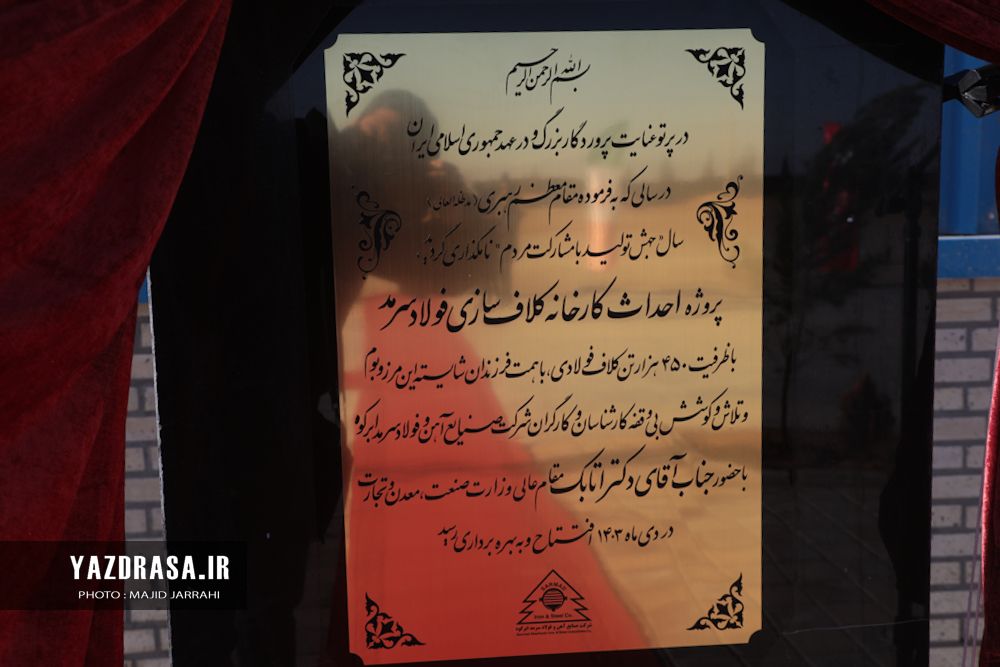 بسم الله الرحمن الرحیم
در پرتو عنایت پروردگار بزرگ و در عهد جمهوری اسلامی ایران
در سالی که به فرموده مقام معظم رهبری (مدظله العالی)
سال "جهش تولید با مشارکت مردم" نامگذاری گردید،
پروژه احداث کارخانه کلاف سازی فولاد سرمد
با ظرفیت ۴۵۰ هزار تن کلاف فولادی، با همت فرزندان شایسته این مرز و بوم
و تلاش و کوشش بی وقفه کارشناسان و کارگران شرکت صنایع آهن و فولاد سرمد ابرکوه
با حضور جناب آقای دکتر اتابک مقام عالی وزارت صنعت، معدن و تجارت
در دی ماه ۱۴۰۳ افتتاح و به بهره برداری رسید
SARMAD
Iron & Steel Co.
شرکت صنایع آهن و فولاد سرمد ابرکوه
YAZDRASA.IR
PHOTO : MAJID JARRAHI